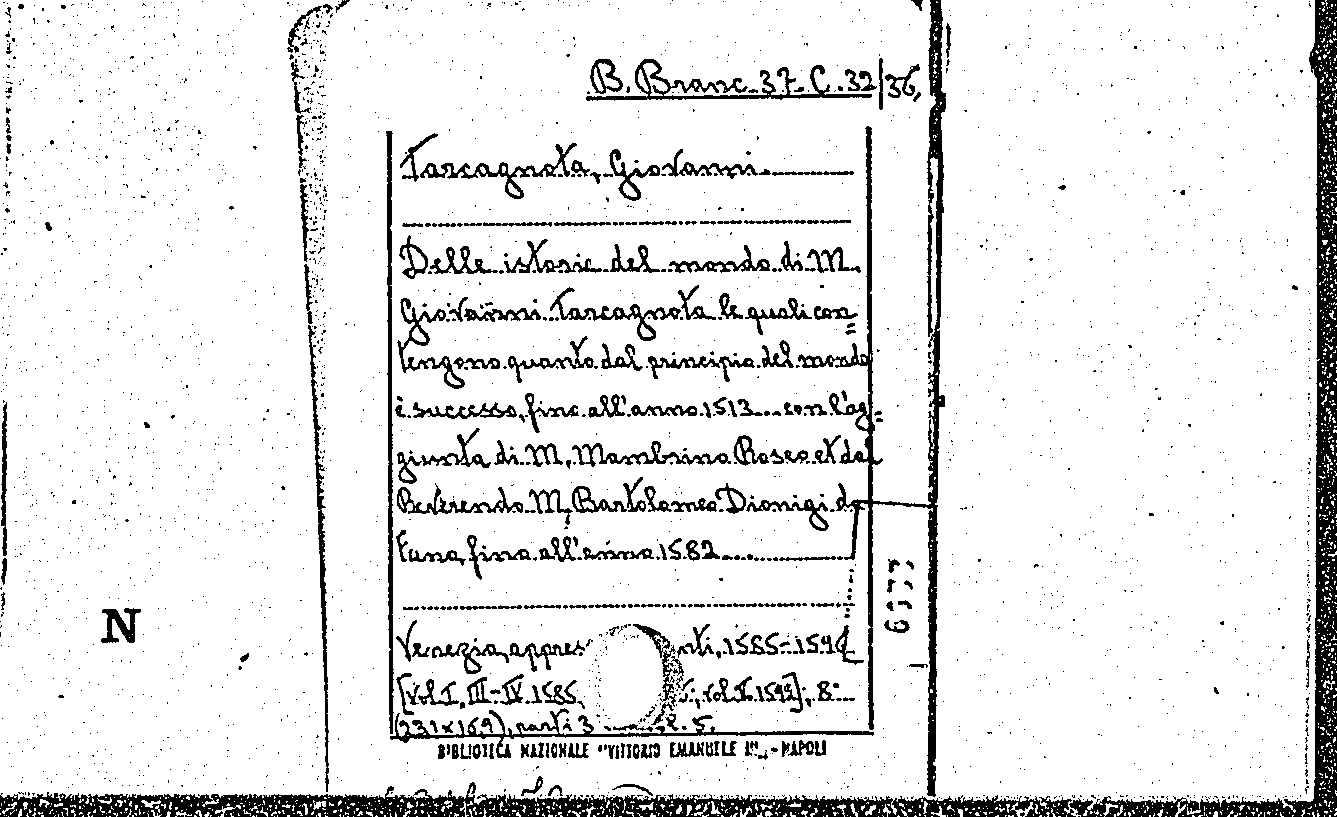 B. Branc. 37. C. 32/36,
Tarcagnota, Giovanni
Delle istorie del mondo di M.
Giovanni Tarcagnota le quali con=
tengono quanto dal principio del mondo
è successo, fino all'anno 1513... con l'ag=
giunta di M. Mambrino Roseo et dal
Reverendo M. Bartolomeo Dionigi da
Fano, fino all'anno 1582...
6777
N
Venezia, appres nti, 1585-
[vol. I, III-IV 1585, vol. V. ]; 8º
(231x169), parti 3 5.
BIBLIOTECA NAZIONALE "VITTORIO EMANUELE III" - NAPOLI